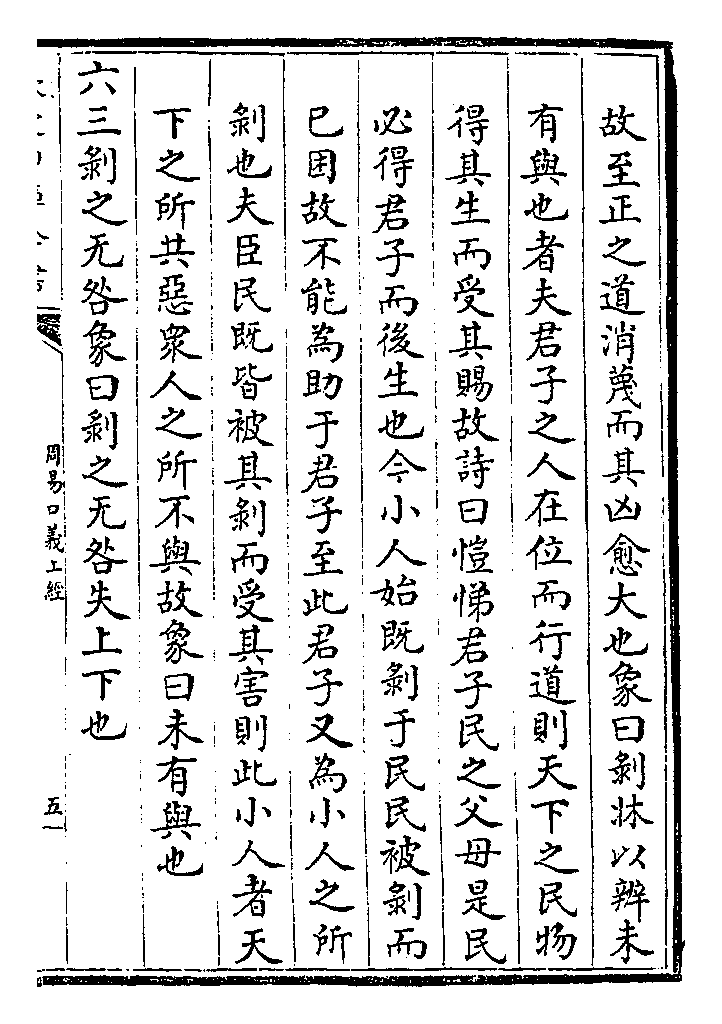 故至正之道消蔑而其凶愈大也象曰剝牀以辨未
有與也者夫君子之人在位而行道則天下之民物
得其生而受其賜故詩曰愷悌君子民之父母是民
必得君子而後生也今小人始既剝于民民被剝而
已困故不能為助于君子至此君子又為小人之所
剝也夫臣民既皆被其剝而受其害則此小人者天
下之所共惡衆人之所不與故象曰未有與也
六三剝之无咎象曰剝之无咎失上下也
周易口義上經
五一